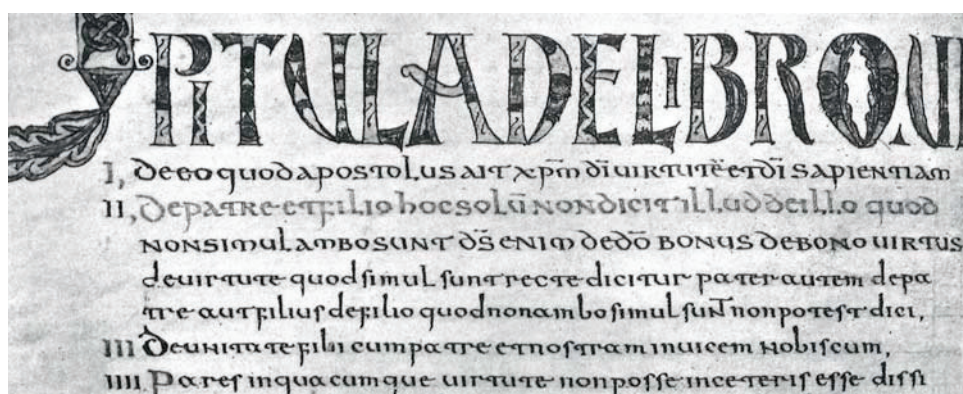 PITULA DE LIBRO
I, De eo quod apostolus ait xp̄m dī uirtutē et dī sapientiam
II, De patre et filio hoc solū non dicit illud de illo quod
non simul ambo sunt d̄s enim de dō bonus de bono uirtus
de uirtute quod simul sunt recte dicitur pater autem de pa
tre aut filius de filio quod non ambo simul sunt non potest dici,
III De unitate fili cum patre et nostram inuicem nobiscum,
IIII Pares in qua cumque uirtute non posse in ceteris esse dissi